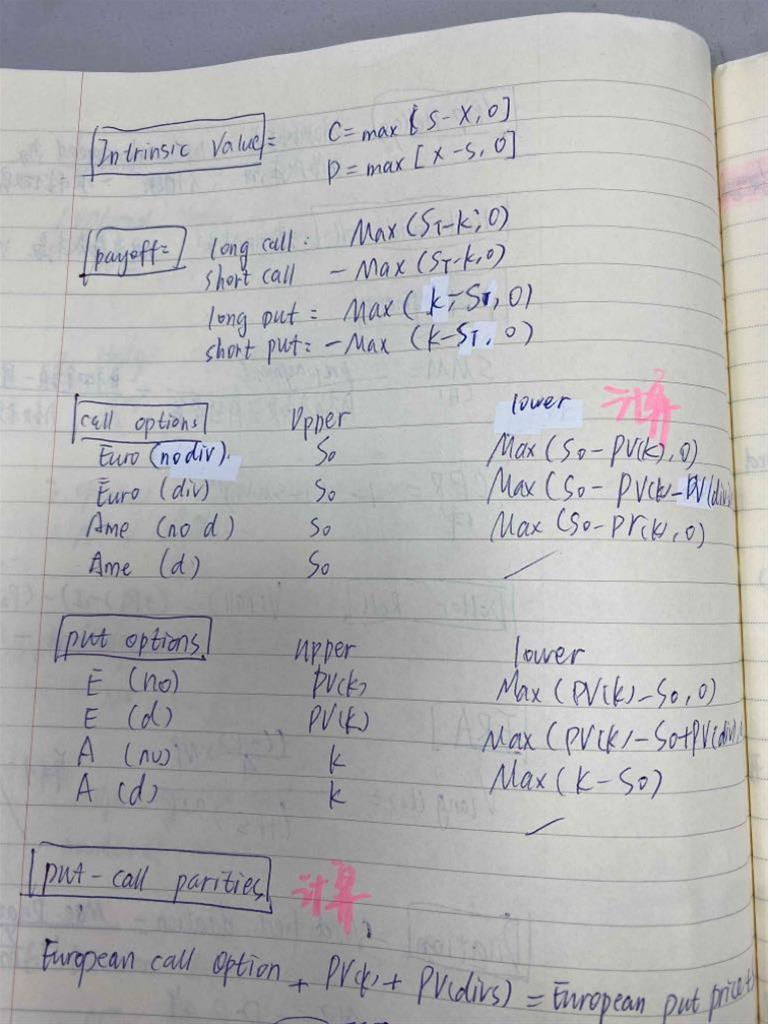 Intrinsic Value = C = max [S - X, 0]
P = max [X - S, 0]
payoff = long call: Max (ST - k, 0)
short call - Max (ST - k, 0)
long put = Max (k - ST, 0)
short put = - Max (k - ST, 0)
call options Upper lower 计算
Euro (no div). S0 Max (S0 - PV(k), 0)
Euro (div) S0 Max (S0 - PV(k) - PV(div)
Ame (no d) S0 Max (S0 - PV(k), 0)
Ame (d) S0
put options upper lower
E (no) PV(k) Max (PV(k) - S0, 0)
E (d) PV(k) Max (PV(k) - S0 + PV(div)
A (no) k Max (k - S0)
A (d) k
put - call parities 计算
European call option + PV(k) + PV(divs) = European put price +